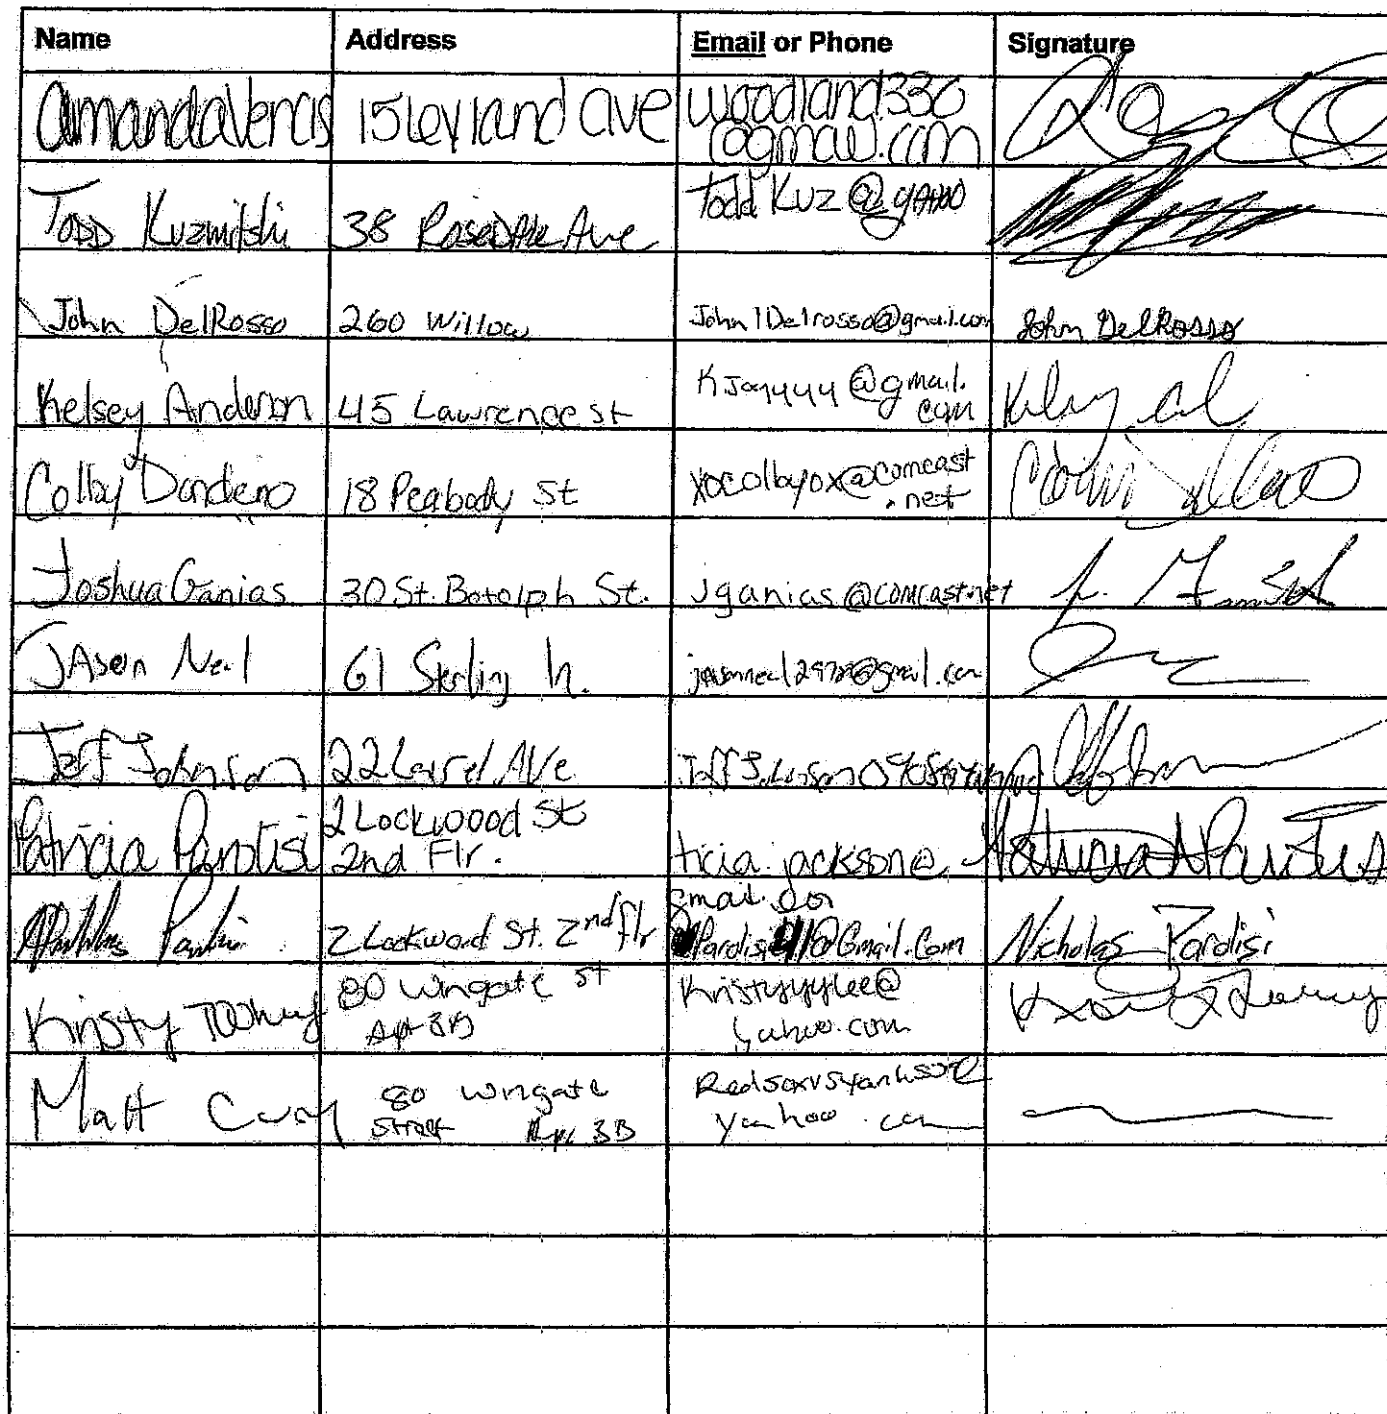 Name Address Email or Phone Signature
Amanda 15 Leyland ave woodland330
@gmail.com
Todd Kuzmitski 38 Rosedale Ave Todd Kuz @ yahoo
John DelRosso 260 Willow John1Delrosso@gmail.com John DelRosso
Kelsey Anderson 45 Lawrence st @gmail.
com
Colby Dandeno 18 Peabody St xocolbyox@comcast
.net
Joshua Ganias 30 St. Botolph St. jganias@comcast.net
JAson Neil 61 Sterling
Jeff Johnson 22 Laurel AVe
Patricia 2 Lockwood St
2nd Flr. tricia.jackson@
gmail
2 Lockwood St. 2nd flr @Gmail.Com Nicholas Pardisi
Kristy 80 Wingate St
Apt 3B Kristyyylee@
yahoo.com
Matt 80 Wingate
Street 3B Redsoxvsyanks
yahoo.com